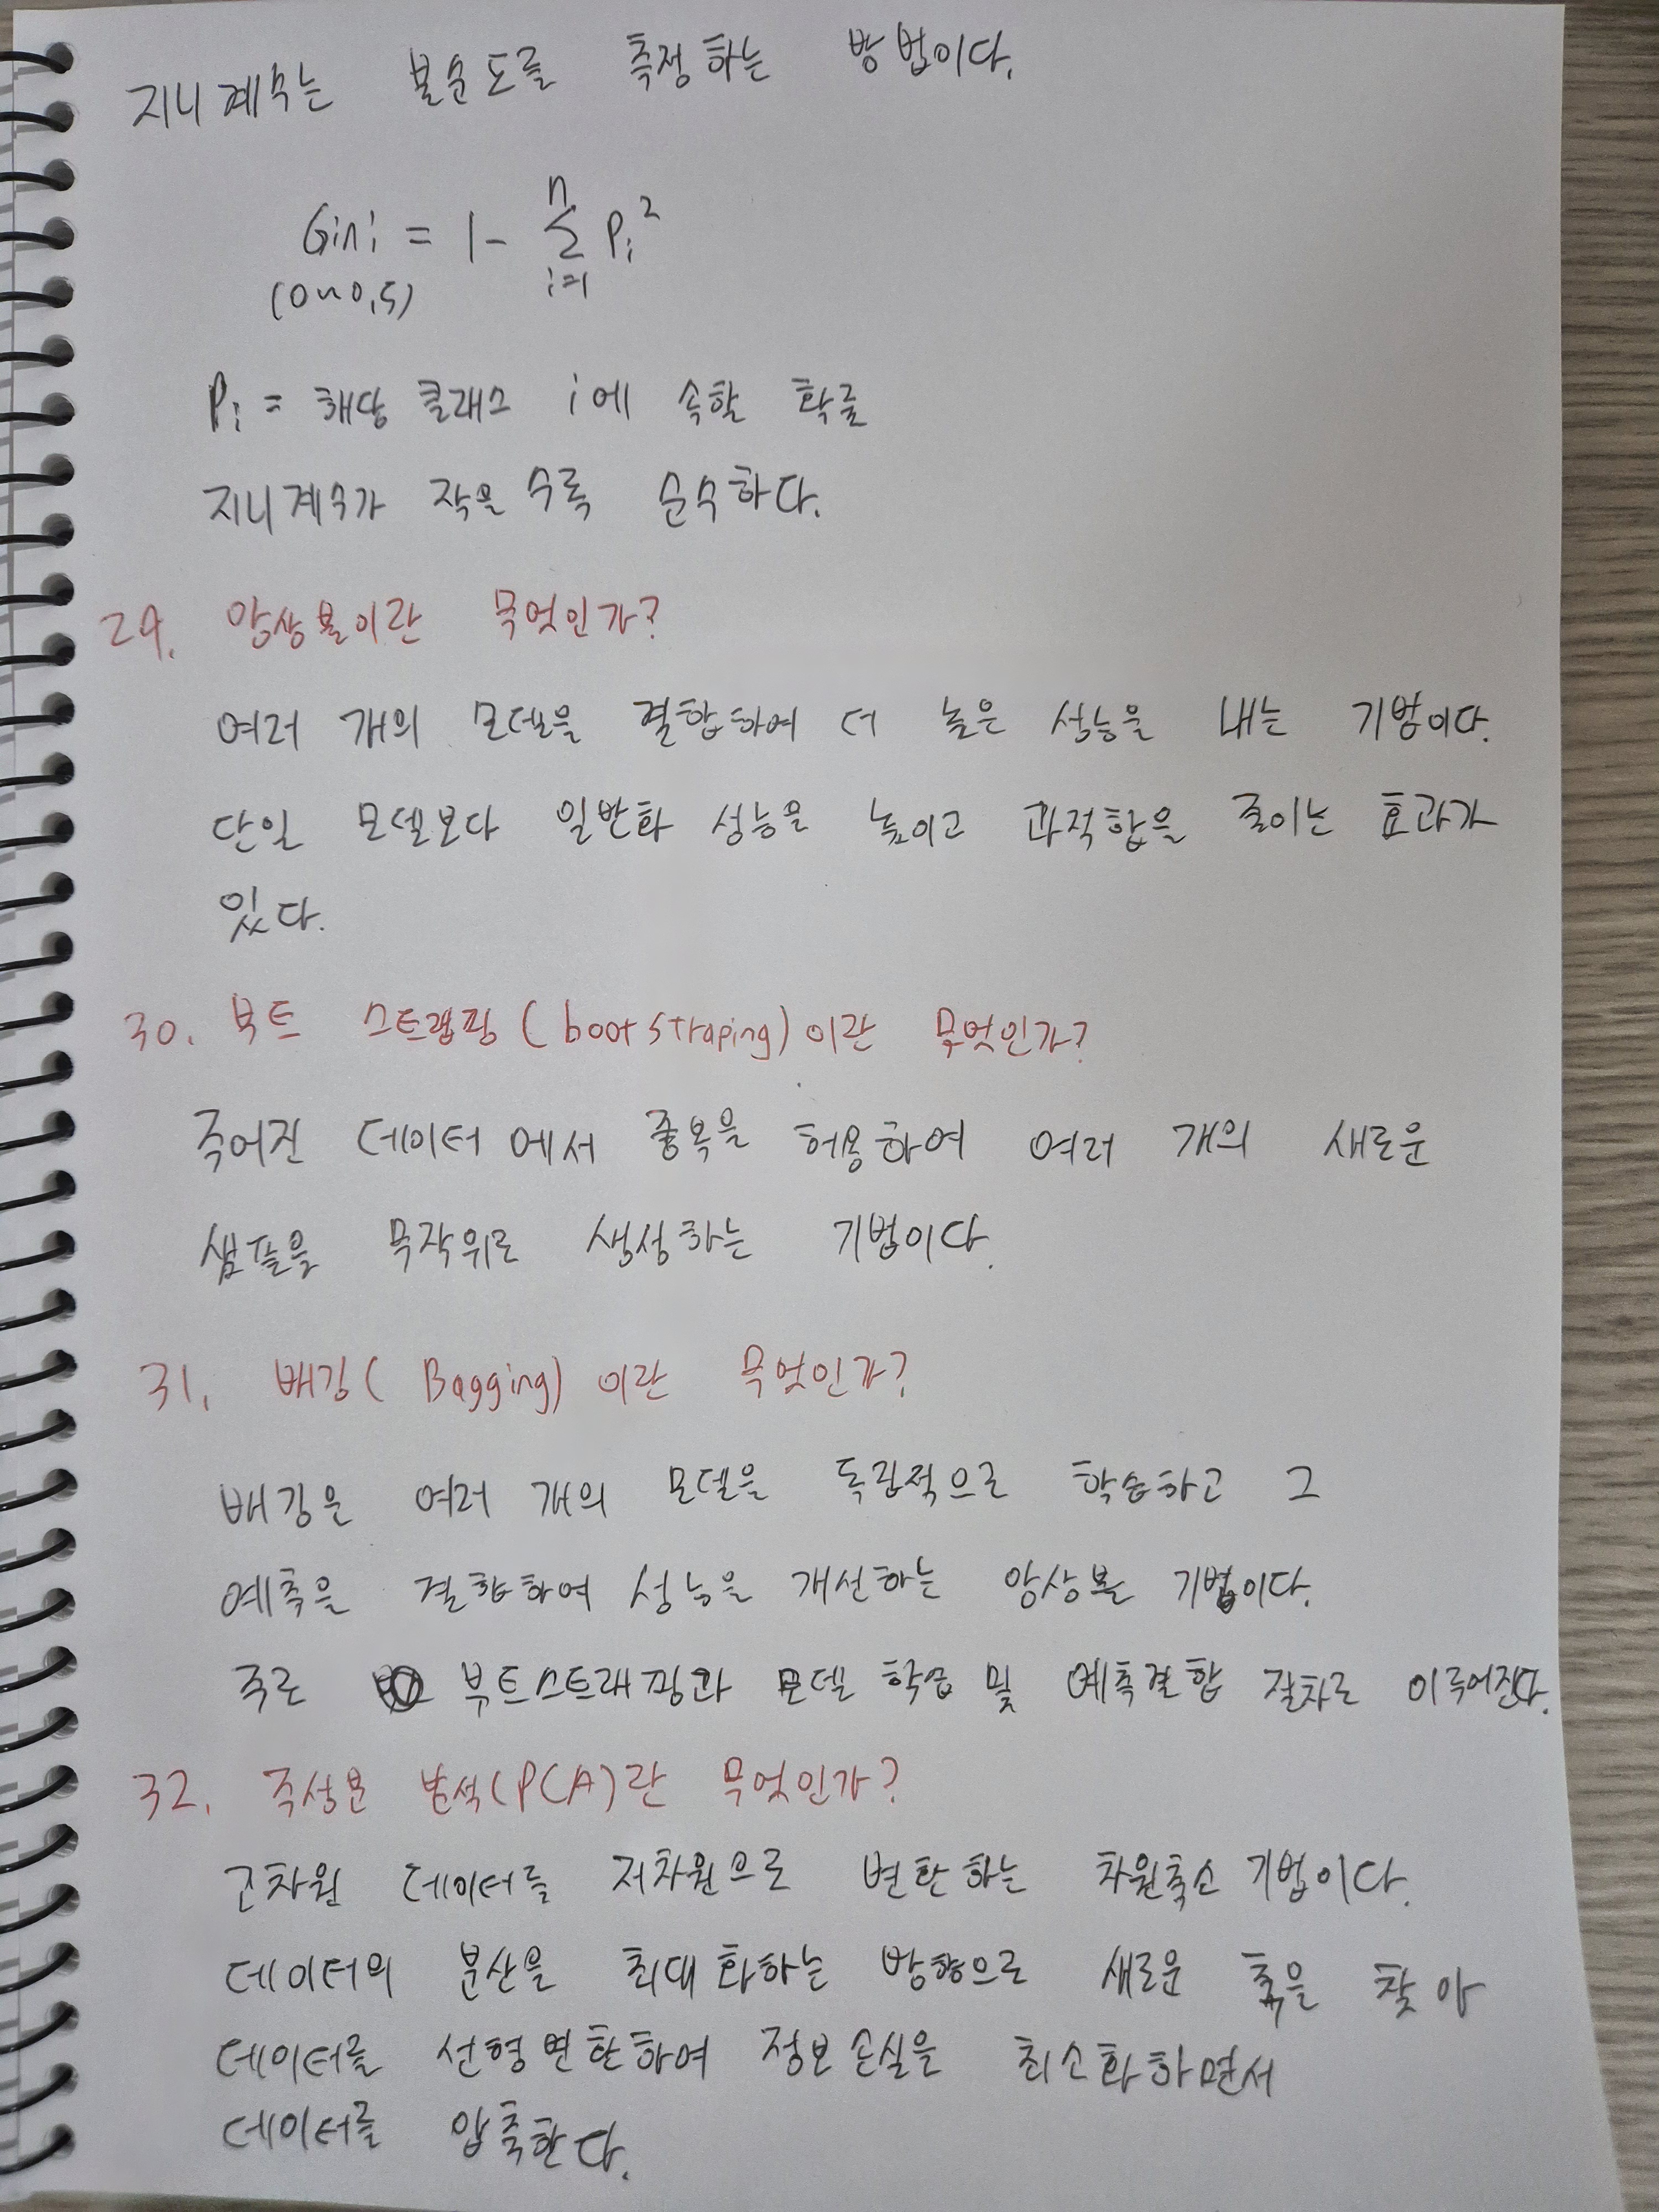 지니계수는 불순도를 측정하는 방법이다.
Gini = 1 - n∑i=1 Pi²
(0~0.5)
Pi = 해당 클래스 i에 속할 확률
지니계수가 작을 수록 순수하다.
29. 앙상블이란 무엇인가?
여러 개의 모델을 결합하여 더 높은 성능을 내는 기법이다.
단일 모델보다 일반화 성능을 높이고 과적합을 줄이는 효과가
있다.
30. 부트 스트랩핑(bootstraping)이란 무엇인가?
주어진 데이터에서 중복을 허용하여 여러 개의 새로운
샘플을 무작위로 생성하는 기법이다.
31. 배깅(Bagging)이란 무엇인가?
배깅은 여러 개의 모델을 독립적으로 학습하고 그
예측을 결합하여 성능을 개선하는 앙상블 기법이다.
주로 부트스트래핑과 모델 학습 및 예측결합 절차로 이루어진다.
32. 주성분 분석(PCA)란 무엇인가?
고차원 데이터를 저차원으로 변환하는 차원축소 기법이다.
데이터의 분산을 최대화하는 방향으로 새로운 축을 찾아
데이터를 선형변환하여 정보손실을 최소화하면서
데이터를 압축한다.